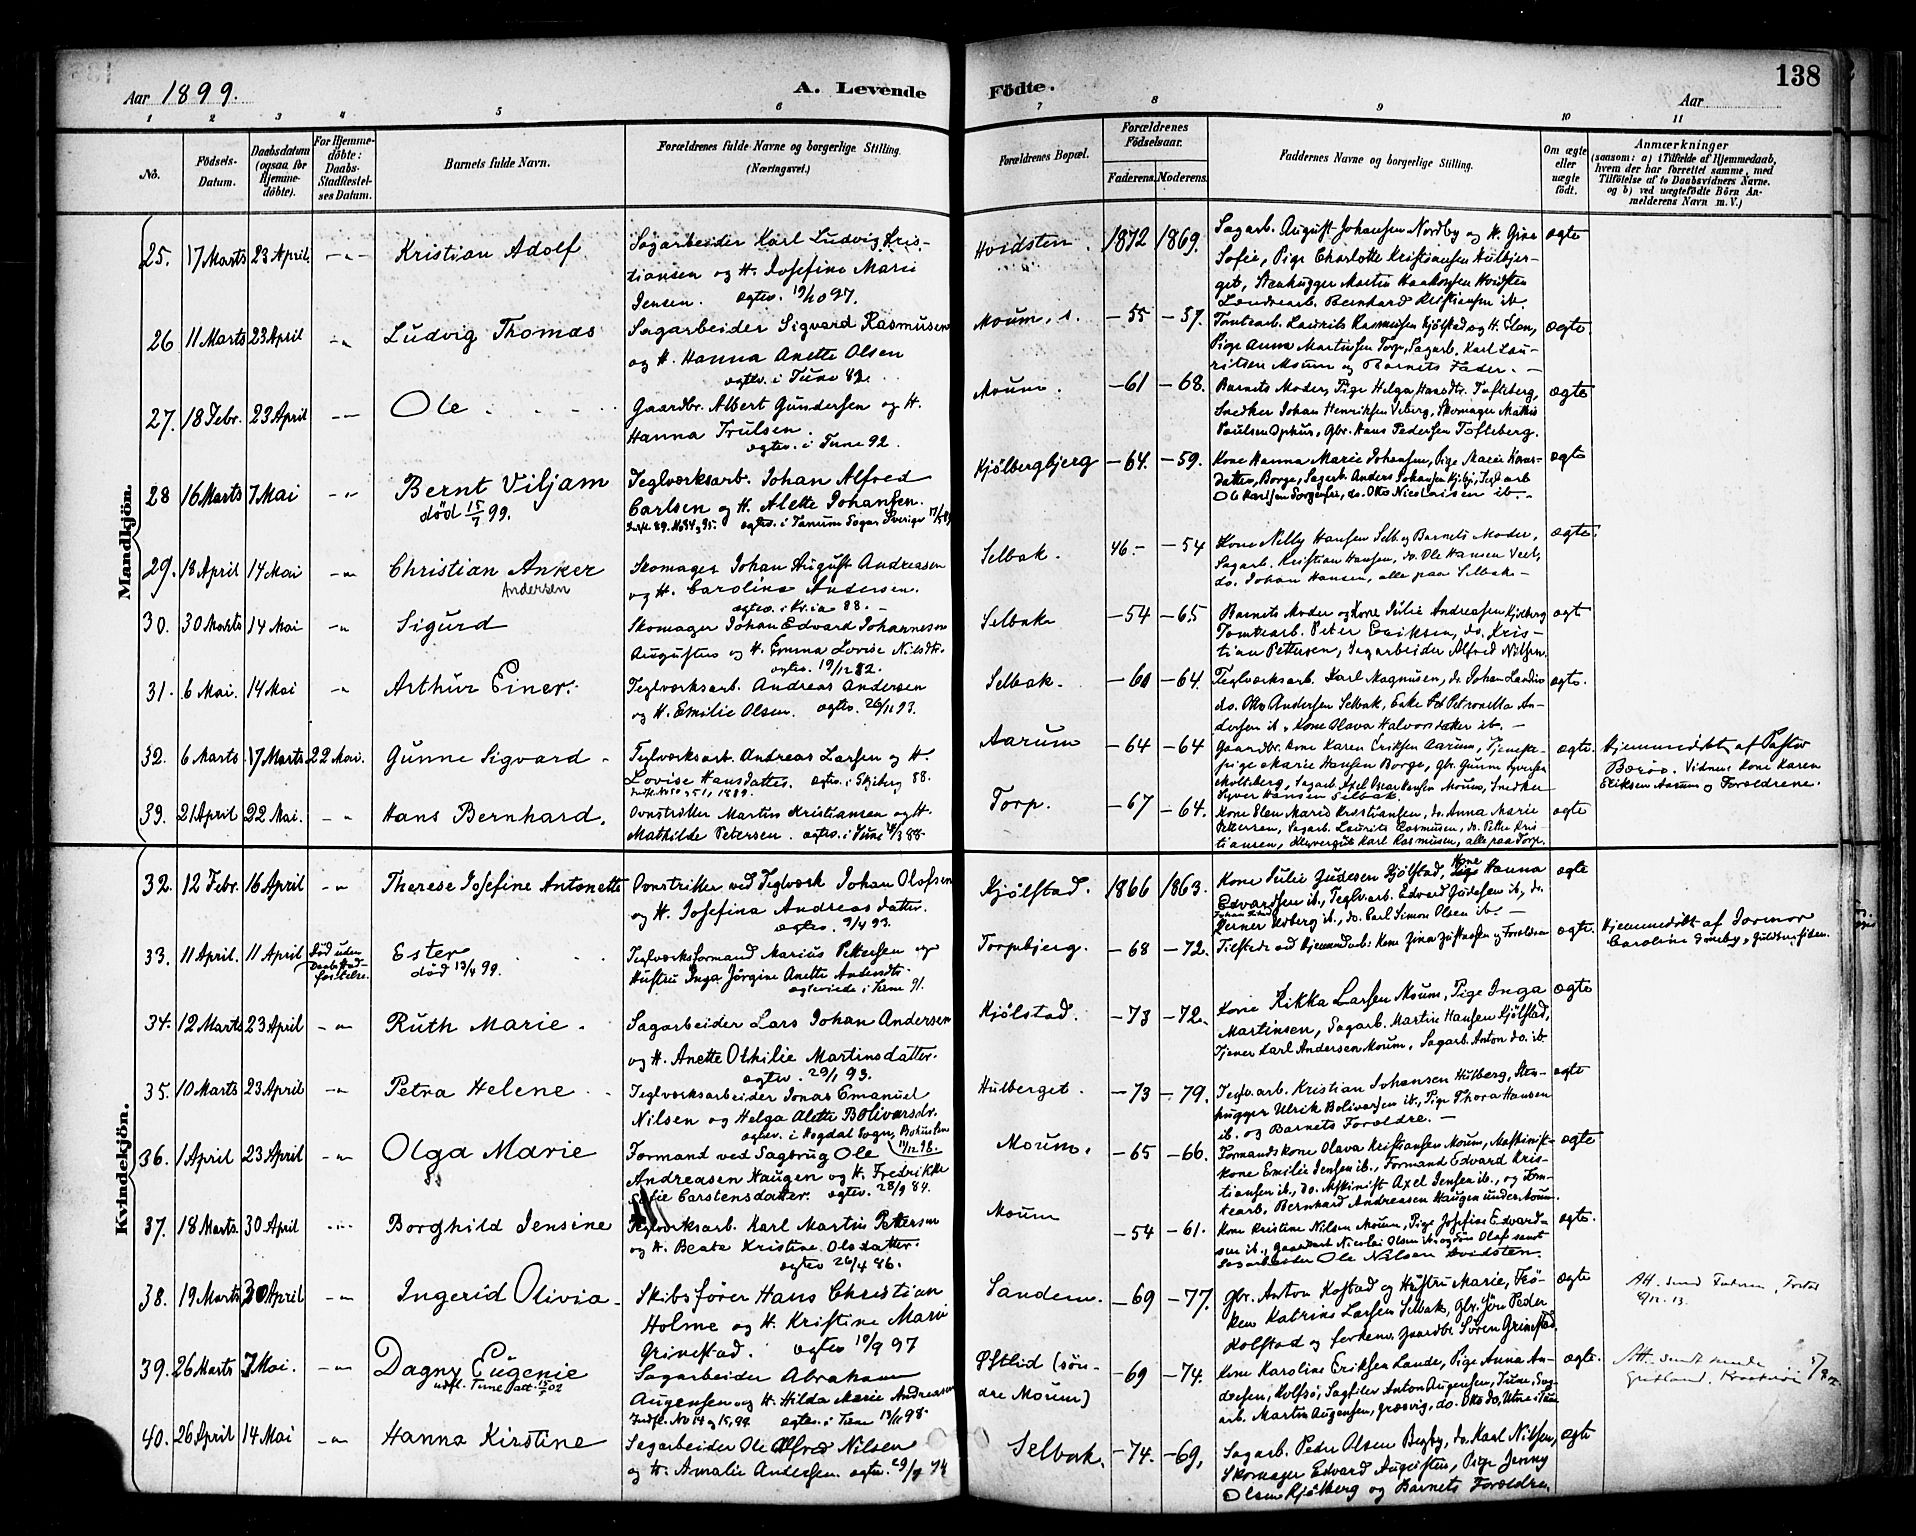 Aar 1899.
A. Levende
Födte.
138
Aar
1 2 3 4 5 6 7 8 9 10 11
No.
Födsels-Datum.
Daabsdatum (ogsaa for Hjemme-döbte).
For Hjemme-döbte: Daabs-Stadfæstel-ses Datum.
Barnets fulde Navn.
Forældrenes fulde Navne og borgerlige Stilling. (Næringsvei.)
Forældrenes Bopæl.
Forældrenes Födselsaar.
Faderens. Moderens.
Faddernes Navne og borgerlige Stilling.
Om ægte eller uægte födt.
Anmærkninger
(saasom: a) i Tilfælde af Hjemmedaab, hvem der har forrettet samme, med Tilföielse af to Daabsvidners Navne. og b) ved uægtefödte Börn Anmelderens Navn m. V.)
Mandkjön.
25. 17 Marts 23 April -"- Kristian Adolf
Sagarbeider Karl Ludvig Kris-
tiansen og H. Josefine Marie
Jensen. ægtev. 19/10 97.
Hvidsten. 1872 1869.
Sagarb. August Johansen Nordby og H. Gina
Sofie, Pige Charlotte Kristiansen Hulbjer-
get, Stenhugger Martin Haakonsen Hvidsten
Bernhard Kristiansen ib.
ægte
26 11 Marts 23 April -"- Ludvig Thomas
Sagarbeider Sigvard Rasmusen
og H. Hanna Anette Olsen
ægtev. i Tune 82.
Moum, s. -55 -57.
Tomtearb. Laurits Rasmusen Kjölstad og H. Elen,
Pige Anna Martinsen Torp, Sagarb. Karl Lau-
ritsen Moum og Barnets Fader.
ægte
27. 18 Febr. 23 April -"- Ole
Gaardbr. Albert Gundersen og H.
Hanna Trulsen.
ægtev. i Tune 92.
Moum. -61 -68.
Barnets Moder, Pige Helga Hansdtr. Tofteberg,
Snedker Johan Henriksen Veberg, Skomager Mathis
Paulsen Ophus, Gbr. Hans Pedersen Tofteberg.
ægte
28 16 Marts 7 Mai -"- Bernt Viljam
död 15/7 99.
Teglværksarb. Johan Alfred
Carlsen og H. Alette Johansen.
ægtev. i Tanum Sogn Sverige
Kjölbergbjerg -64. -59.
Kone Hanna Marie Johansen, Pige Marie
Borge, Sagarb. Anders Johansen
Ole Karlsen, do. Otto Nicolaisen ib.
ægte
29. 18 April 14 Mai -"- Christian Anker
Andersen
Skomager Johan August Andreasen
og H. Carolina Andersen.
ægtev. i Kr.ia 88.
Selbak. 46.- -54
Kone Nelly Hansen Selb. og Barnets Moder,
Sagarb. Kristian Hansen, do. Ole Hansen Veel,
do. Johan Hansen, alle paa Selbak.
ægte.
30. 30 Marts 14 Mai -"- Sigurd
Skomager Johan Edvard Johannesen
Augustus og H. Emma Lovise Nilsdtr.
ægtev. 19/12 82.
Selbak -54 -65
Barnets Moder og Kone Julie Andreasen Kjölberg
Tomtearb. Peter Eriksen, do. Kris-
tian Pettersen, Sagarbeider Alfred Nilsen.
ægt
31. 6 Mai. 14 Mai -"- Arthur Einer.
Teglværksarb. Andreas Andersen
og H. Emilie Olsen. ægtev. 26/11 93.
Selbak. -60 -64.
Teglværksarb. Karl Magnusen, do. Johan Landin
do. Otto Andersen Selbak, Enke Petronilla An-
dersen ib, Kone Olava Halvorsdatter ib.
ægte.
32. 6 Marts 17 Marts 22 Mai. Gunne Sigvard
Teglværksarb. Andreas Larsen og H.
Lovise Hansdatter. ægtev. i Skjeberg 88.
Aarum -64 -64
Gaardbr. Kone Karen Eriksen Aarum, Tjeneste-
pige Marie Hansen Borge, Gbr. Gunne Syversen
Molteberg, Sagarb. Axel Oscar Hansen Moum, Snedker
Syver Hansen Selbak.
ægte.
Hjemmedöbt af Pastor
Börös. Vidner: Kone Karen
Eriksen Aarum og Forældrene.
33. 21 April 22 Mai. -"- Hans Bernhard.
Ovnstriker Martin Kristiansen og H.
Mathilde Petersen. ægtev. i Tune 88.
Torp. -67 -64.
Kone Elen Marie Kristiansen, do. Anna Marie
Pettersen, Sagarb. Laurits Rasmusen, do. Petter Kris-
tiansen, Karl Rasmusen, alle paa Torp.
ægte
Kvindekjön.
32. 12 Febr. 16 April -"- Therese Josefine Antonette
Ovnstriker ved Teglværk Johan Olafsen
og H. Josefina Andreasdatter.
ægtev. 9/4 93.
Kjölstad. 1866 1863.
Kone Julie Judesen Kjölstad, Kone Hanna
Edvardsen ib., Teglv.arb. Edvard Judesen ib., do.
ib., do. Carl Simon Olsen ib.
ægte
33. 11 April. 11 April Död uden Daabs Stad-fæstelse. Ester
död 13/4 99.
Teglværksformand Marius Pettersen og
Hustru Inga Jörgine Anette Andersdtr.
ægteviede i Tune 91.
Torpebjerg. -68 -72.
Tilstede ved Hjemmedaab: Kone Gina og Forældrene
ægte.
Hjemmedöbt af Jormor
Caroline
34. 12 Marts 23 April -"- Ruth Marie.
Sagarbeider Lars Johan Andersen
og H. Anette Othilie Martinsdatter.
ægtev. 29/1 93.
Kjölstad. -73 -72.
Kone Rikka Larsen Moum, Pige Inga
Martinsen, Sagarb. Martin Hansen Kjölstad,
Tjener Karl Andersen Moum, Sagarb. Anton do. ib.
ægte
35. 10 Marts 23 April -"- Petra Helene
Teglværksarbeider Jonas Emanuel
Nilsen og Helga Alette Bolivarsdr.
ægtev. i Hogdal Sogn, Bohuslen
11/12 98.
Hulberget. -73 -79.
Teglv.arb. Kristian Johansen Hulberg, Sten-
hugger Ulrik Bolivarsen ib., Pige Thora Hansen
ib. og Barnets Forældre.
ægte
36. 1 April 23 April -"- Olga Marie
Formand ved Sagbrug Ole
Andreasen Haugen og H. Fredrikke
Sofie Carstensdatter. ægtev. 28/9 84.
Moum. -65 -66.
Formandskone Olava Kristiansen Moum, Maskinist-
kone Emilie Jensen ib., Formand Edvard Kris-
tiansen ib., do. Maskinist Axel Jensen ib., og Tom-
tearb. Bernhard Andreasen Haugen under Moum
ægte
37. 18 Marts. 30 April -"- Borghild Jensine
Teglværksarb. Karl Martin Pettersen
og H. Beate Kristine Olsdatter.
ægtev 26/4 86.
Moum -54 -61.
Kone Kristine Nilsen Moum, Pige Josefine Edvard-
sen ib., Gaardarb. Nicolai Olsen ib. og Sön Olaf samt
Sagarbeider Ole Nilsen Hvidsten.
ægte.
38. 19 Marts 30 April -"- Ingerid Olivia
Skibsförer Hans Christian
Holme og H. Kristine Marie
Grinestad. ægtev 19/9 97
Sandem. -69 -77.
Gbr. Anton Kolstad og Hustru Marie, Frö-
ken Katrine Larsen Selbak, Gbr. Sön Peder
Kolstad og Gaardbr. Sören Grinestad.
ægte
Att. sendt Faderen,
8/12 13.
39. 26 Marts 7 Mai. -"- Dagny Eugenie
udfl. Tune att. 15/2 02
Sagarbeider Abraham
Augensen og H. Hilda Marie Andreasen
Indfl. No 14 og 15, 99. ægtev. i Tune 13/11 98.
Östlid (sön-
dre Moum) -69 -74.
Kone Karoline Eriksen Lande, Pige Anna An-
dresen, Rolfsö, Sagfiler Anton Augensen, Tune, Sag-
arb. Martin Augensen, Græsvig, do. Otto do, Utne i Tune
ægte.
Att. sendt
40. 26 April 14 Mai -"- Hanna Kirstine
Sagarbeider Ole Alfred Nilsen
og H. Amalie Andersen. ægtev. 29/9 94
Selbak. -74. -69,
Sagarb. Peder Olsen Begby, do. Karl Nilsen,
Skomager Edvard Augustus, Pige Jenny
Olsen Kjölberg og Barnets Forældre.
ægte